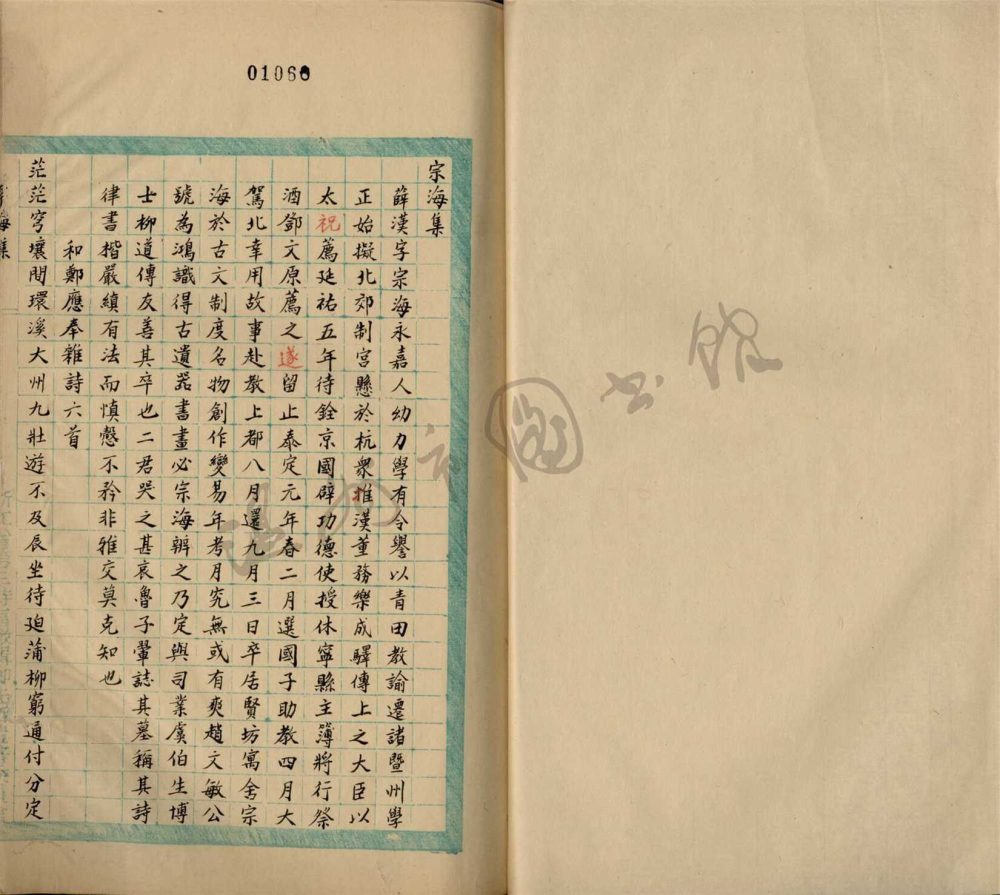 01060
宗海集
薛漢字宗海永嘉人幼力學有令譽以青田教諭遷諸暨州學
正始擬北郊制宮懸於杭衆推漢董務樂成驛傳上之大臣以
太祝薦延祐五年待銓京國辟功德使授休寧縣主簿將行祭
酒鄧文原薦之遂留止泰定元年春二月選國子助教四月大
駕北幸用故事赴教上都八月還九月三日卒居賢坊寓舍宗
海於古文制度名物創作變易年考月究無或有爽趙文敏公
號為鴻識得古遺器書畫必宗海辨之乃定與司業虞伯生博
士柳道傳友善其卒也二君哭之甚哀魯子翬誌其墓稱其詩
律書楷嚴縝有法而慎慤不矜非雅交莫克知也
和鄭應奉雜詩六首
茫茫穹壤間環溪大州九壯遊不及辰坐待廹蒲柳窮通付分定
海集
圖書館